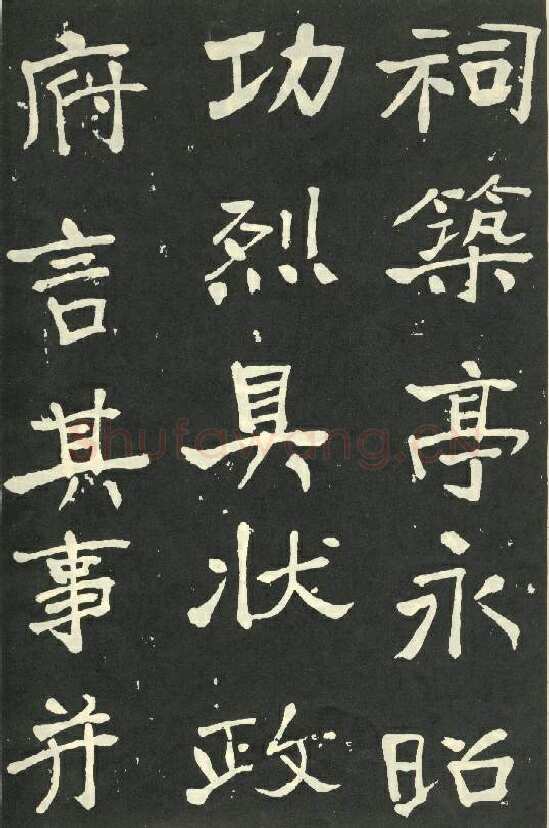 祠築亭永昭
功烈具狀政
府言其事并
shufawang.cn